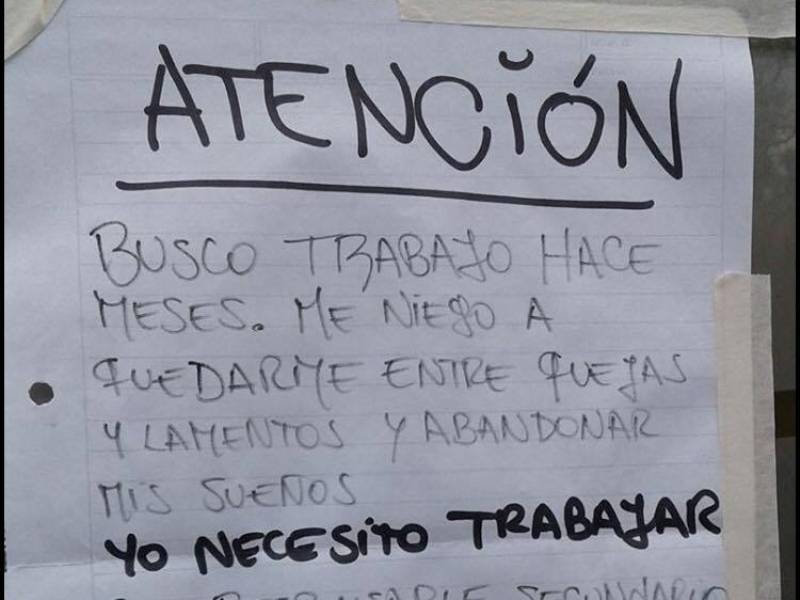 ATENCIÓN
BUSCO TRABAJO HACE
MESES. ME NIEGO A
QUEDARME ENTRE QUEJAS
Y LAMENTOS Y ABANDONAR
MIS SUEÑOS
YO NECESITO TRABAJAR
RESPONSABLE SECUNDARIO